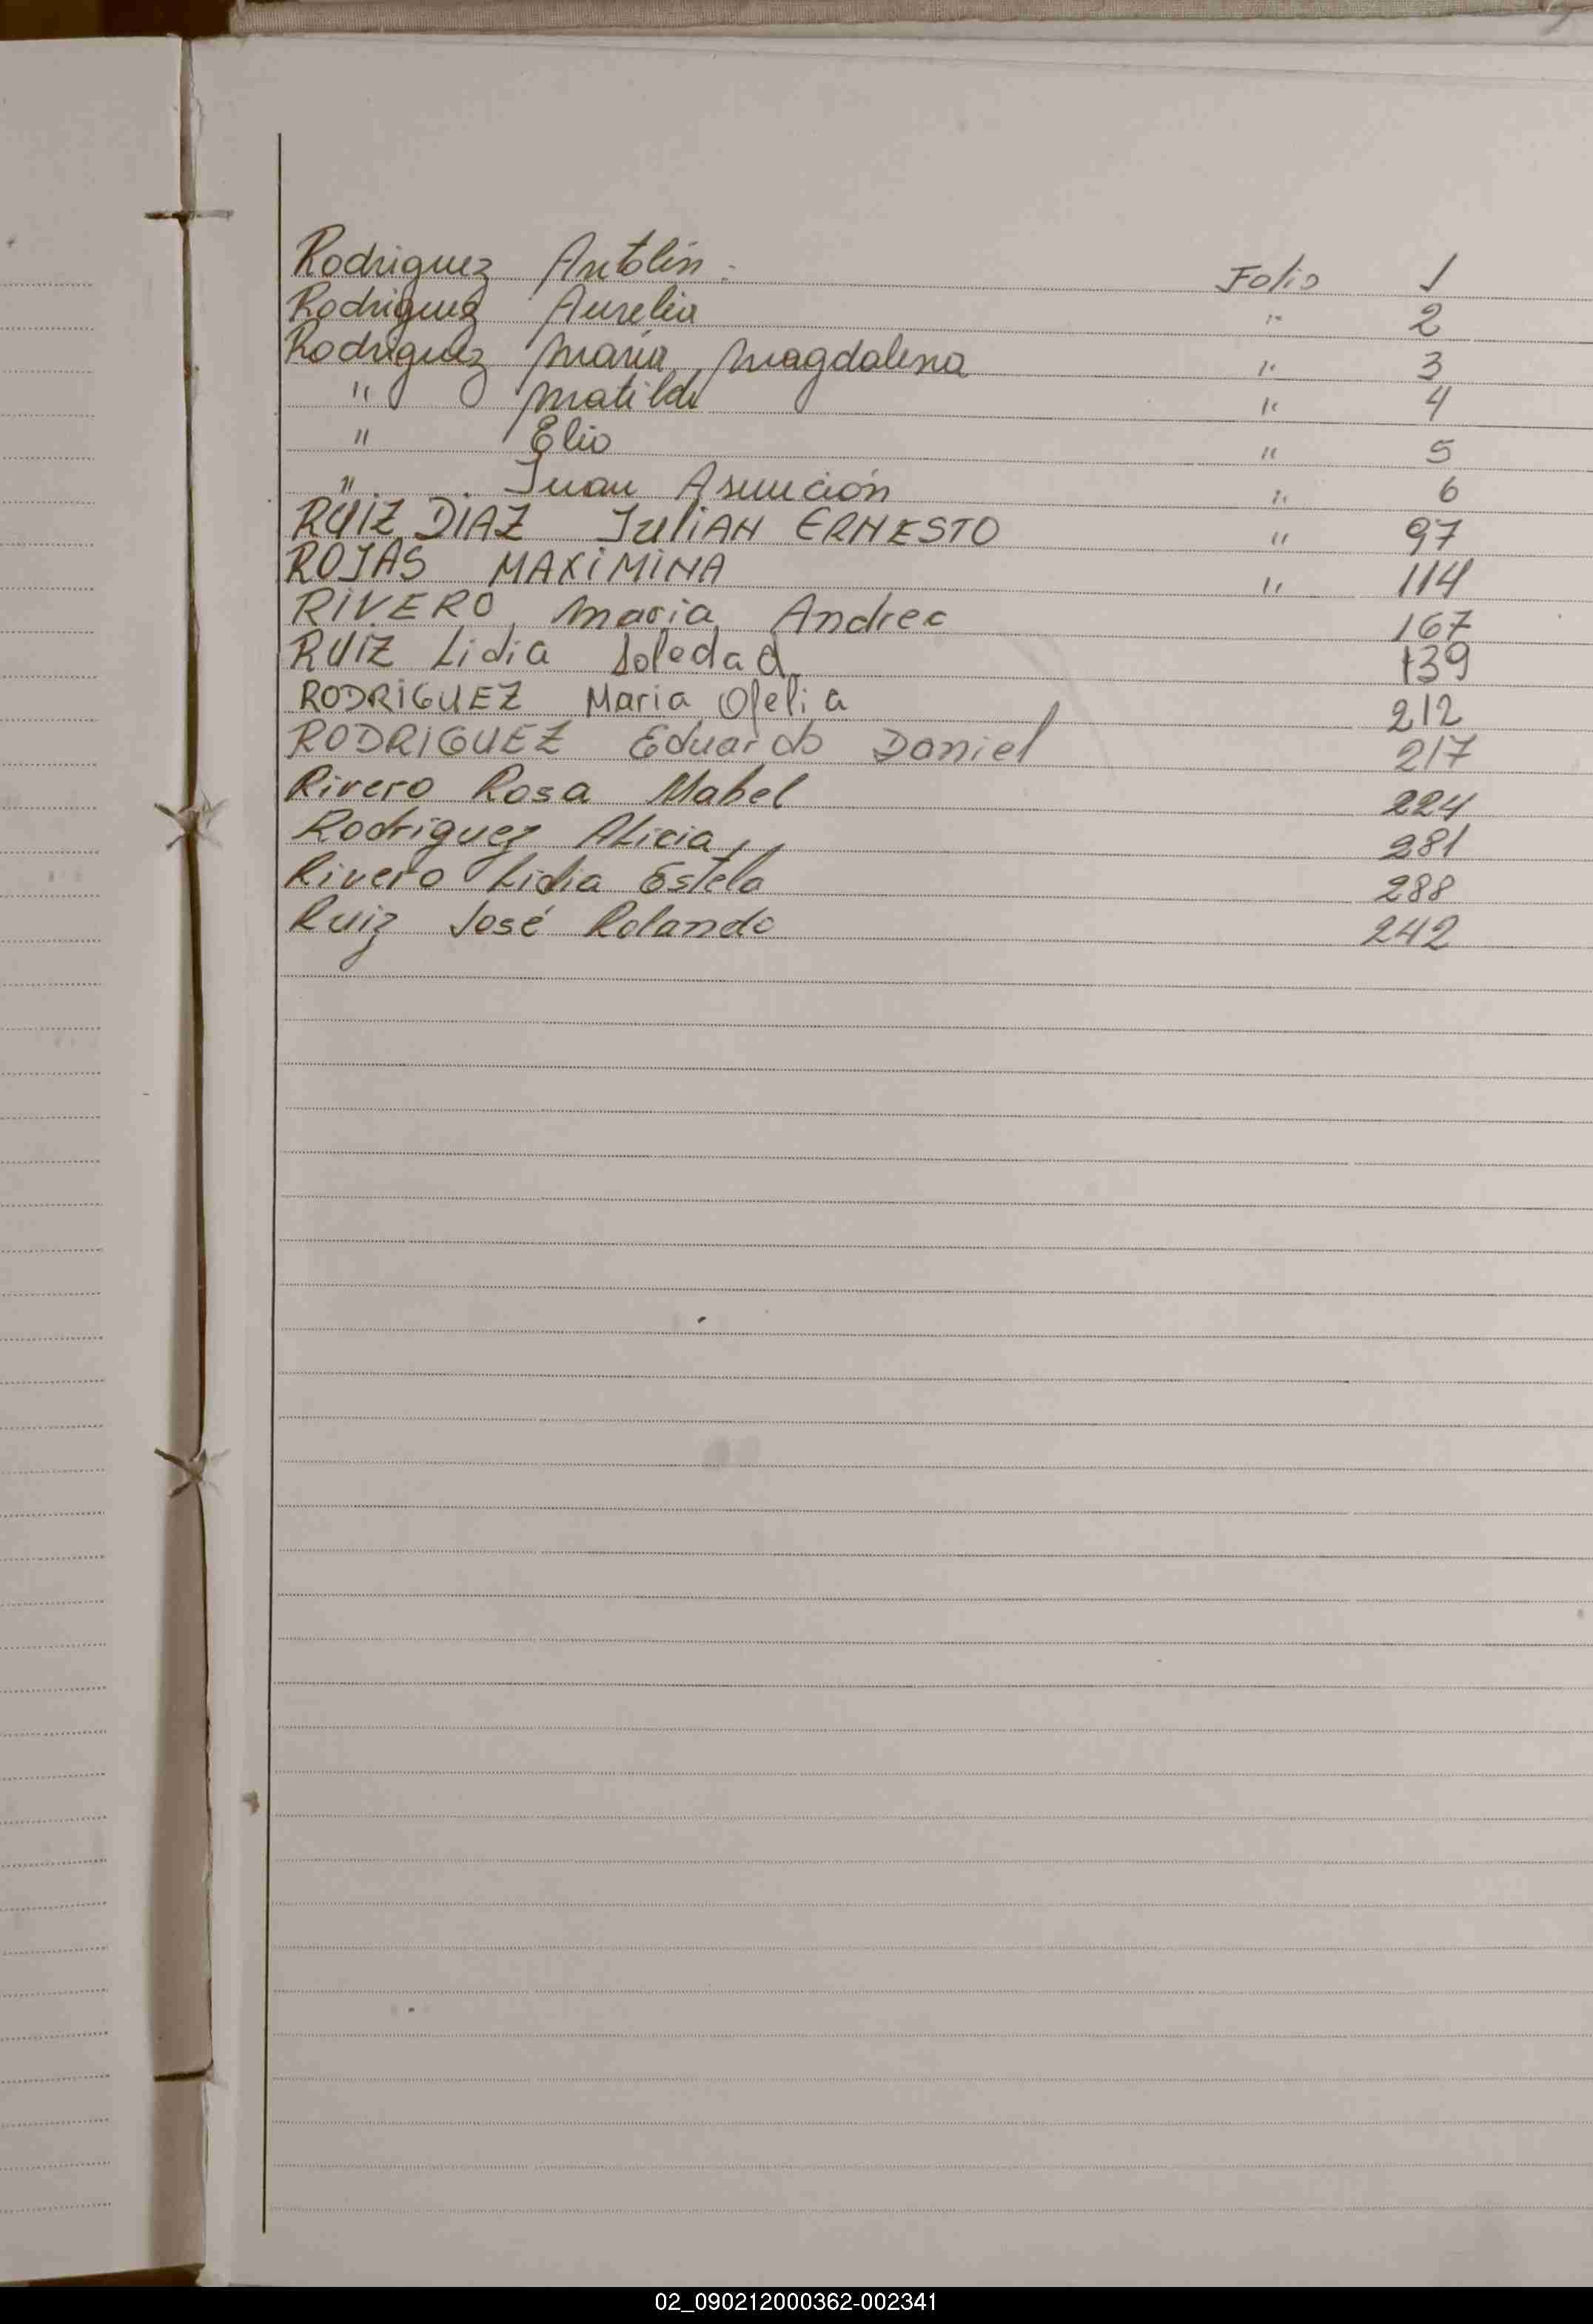 Rodriguez Antolín. Folio 1
Rodriguez Aurelia " 2
Rodriguez María Magdalena " 3
" Matilde " 4
" Elio " 5
" Juan Asunción " 6
RUIZ DIAZ JULIAN ERNESTO " 97
ROJAS MAXIMINA " 114
RIVERO Maria Andrea 167
RUIZ Lidia Soledad 139
RODRIGUEZ Maria Ofelia 212
RODRIGUEZ Eduardo Daniel 217
Rivero Rosa Mabel 224
Rodriguez Alicia 281
Rivero Lidia Estela 288
Ruiz José Rolando 242
02_090212000362-002341